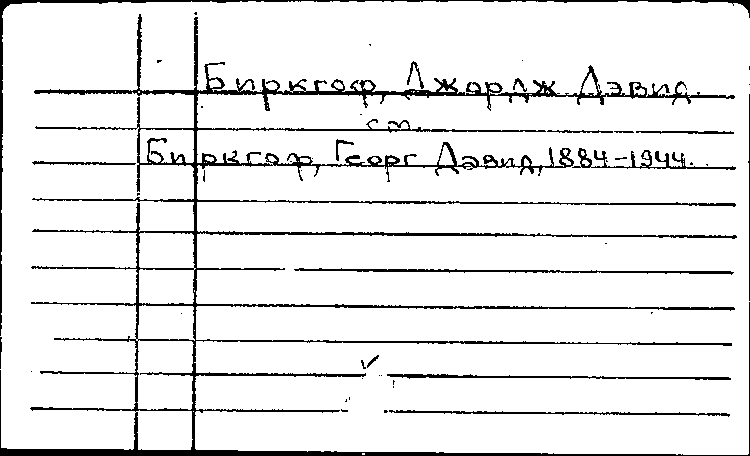 Биркгоф, Джордж Дэвид.
см.
Биркгоф, Георг Дэвид, 1884-1944.